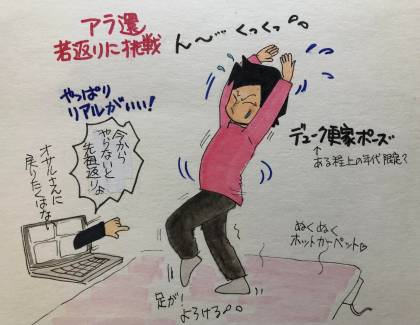 アラ還
若返りに挑戦
ん〜〜くっくっ。。
やっぱり
リアルがいい!
今から
やらないと
先祖返りよ
オサルさんに
戻りたくはない
デューク更家ポーズ
↑
ある程上の年代限定?
ぬくぬく
ホットカーペット♡
足が!
よろける。。